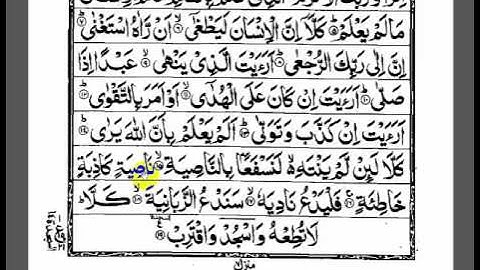 مَا لَمْ يَعْلَمْ ﴿۵﴾ كَلَّاۤ اِنَّ الْاِنْسَانَ لَيَطْغٰٓى ﴿۶﴾ اَنْ رَّاٰهُ اسْتَغْنٰى ﴿۷﴾
اِنَّ اِلٰى رَبِّكَ الرُّجْعٰى ﴿۸﴾ اَرَءَيْتَ الَّذِيْ يَنْهٰى ﴿۹﴾ عَبْدًا اِذَا
صَلّٰى ﴿۱۰﴾ اَرَءَيْتَ اِنْ كَانَ عَلَى الْهُدٰٓى ﴿۱۱﴾ اَوْ اَمَرَ بِالتَّقْوٰى ﴿۱۲﴾
اَرَءَيْتَ اِنْ كَذَّبَ وَتَوَلّٰى ﴿۱۳﴾ اَلَمْ يَعْلَمْ بِاَنَّ اللّٰهَ يَرٰى ﴿۱۴﴾
كَلَّا لَئِنْ لَّمْ يَنْتَهِ لَنَسْفَعًۢا بِالنَّاصِيَةِ ﴿۱۵﴾ نَاصِيَةٍ كَاذِبَةٍ
خَاطِئَةٍ ﴿۱۶﴾ فَلْيَدْعُ نَادِيَهٗ ﴿۱۷﴾ سَنَدْعُ الزَّبَانِيَةَ ﴿۱۸﴾ كَلَّا ؕ
لَا تُطِعْهُ وَاسْجُدْ وَاقْتَرِبْ ﴿۱۹﴾
منزل